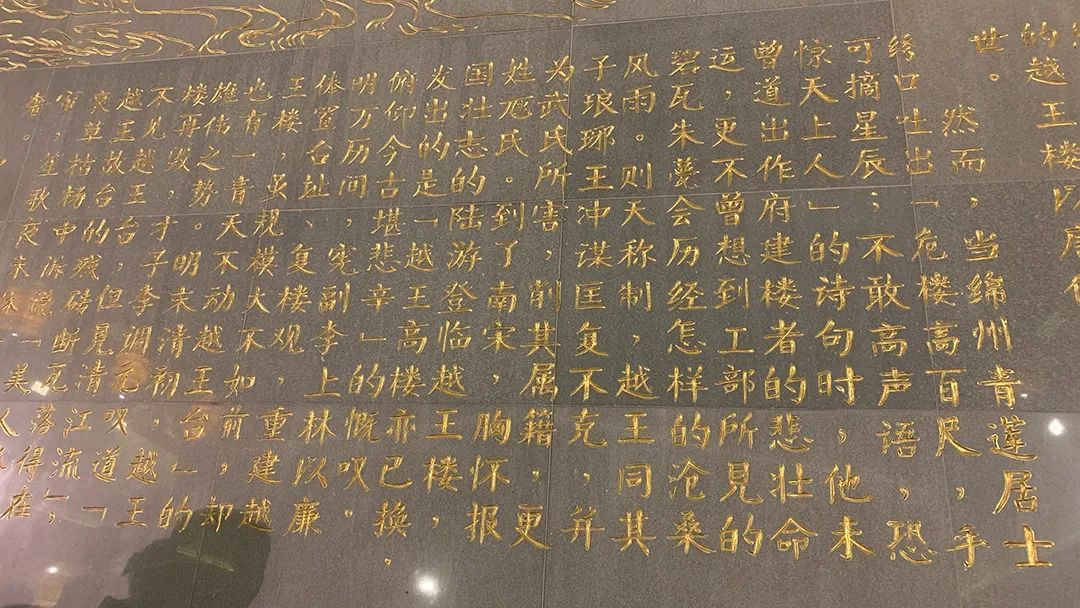 的越王楼以唐
世。
然而，当绵州青莲居士
绣口吐出「危楼高百尺，手
可摘星辰；不敢高声语，恐
惊天上人」的诗句时，他未
曾道出作府建楼者的悲壮命
运，更不曾想到工部所見的
碧瓦朱甍会历经怎样的沧桑
风雨。则天称制，越王同其
子琅琊王冲谋匡复不克，并
为武氏所害，削其属籍，更
姓虺氏。到了南宋，胸怀报
国壮志的陆游登临越王楼，
发出的是「越王高楼亦已换，
俯仰今古堪悲辛」的慨叹。
明万历间，宪副李上林以廉
俸置台址、复楼观，重建越
王楼，虽规模大不如前，却
也有一青天不动越王台」的
雄伟之势。明末清初，越王
楼再毁，才子李调元叹道「
不见越王台，但見清江流」；
越王故台的残砖断瓦落得在
衰草枯杨中
帘，笙歌夜未休「美人
奢。